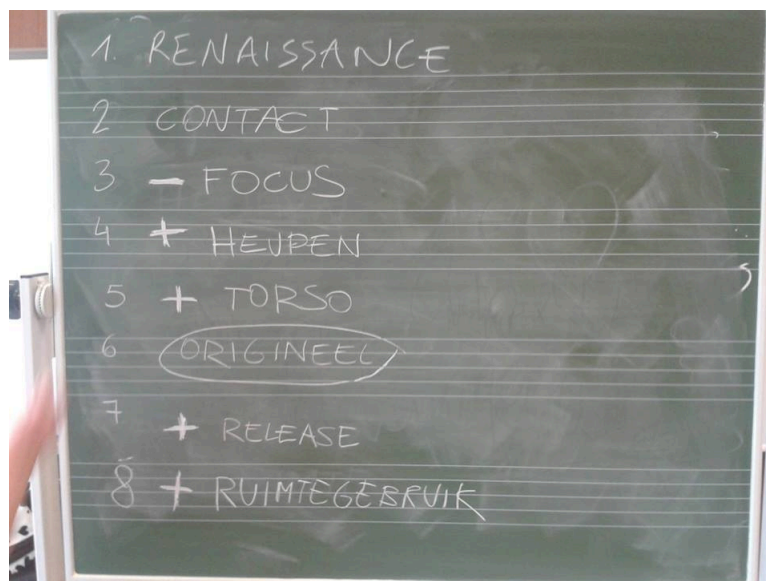 1. RENAISSANCE
2 CONTACT
3 - FOCUS
4 + HEUPEN
5 + TORSO
6 ORIGINEEL
7 + RELEASE
8 + RUIMTEGEBRUIK